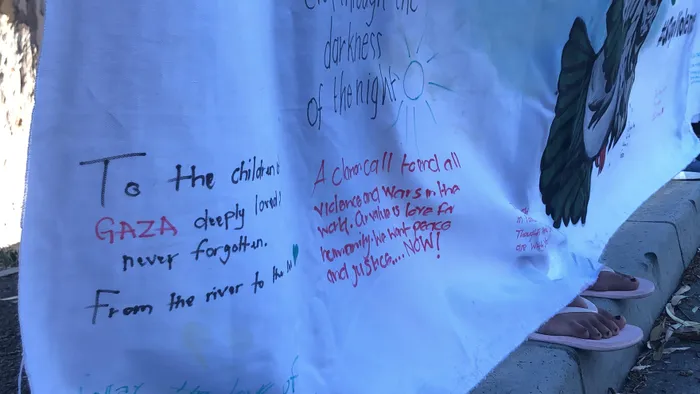 through the
darkness
of the night
To the children
GAZA deeply loved!
never forgotten.
From the river to the
A clarion call to end all
violence and wars in the
world. Our value is love for
humanity. We want peace
and justice.... NOW!
of